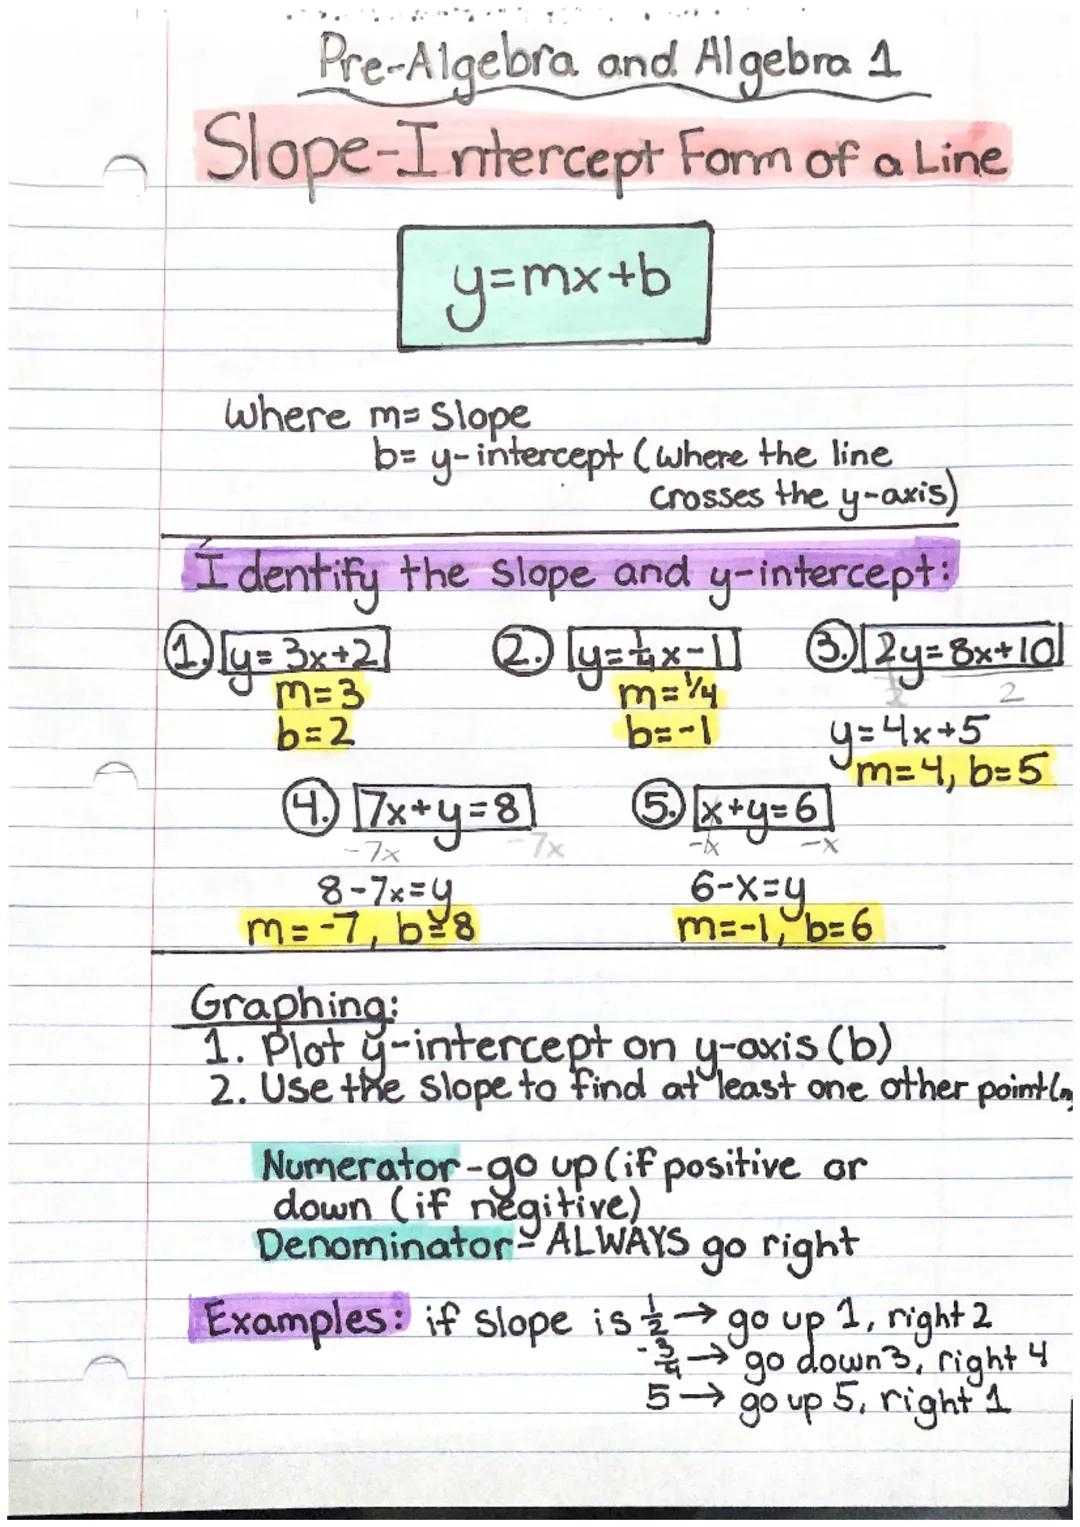 Pre-Algebra and Algebra 1
Slope-Intercept Form of a Line
y=mx+b
where m= slope
b= y-intercept (where the line
crosses the y-axis)
Identify the slope and y-intercept:
1. y=3x+2
m=3
b=2
2. y=1/4x-1
m=1/4
b=-1
3. 2y=8x+10
2 2
y=4x+5
m=4, b=5
4. 7x+y=8
-7x -7x
8-7x=y
m=-7, b=8
5. x+y=6
-x -x
6-x=y
m=-1, b=6
Graphing:
1. Plot y-intercept on y-axis (b)
2. Use the slope to find at least one other point
Numerator-go up (if positive or
down (if negitive)
Denominator- ALWAYS go right
Examples: if slope is 1/2 → go up 1, right 2
-3/4 → go down 3, right 4
5 → go up 5, right 1